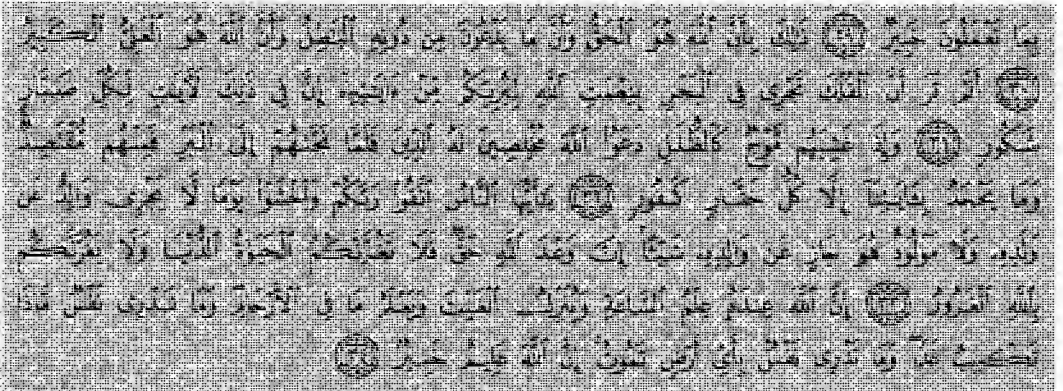 بِمَا تَعْمَلُونَ خَبِيرٌ ٢٩ ذَٰلِكَ بِأَنَّ ٱللَّهَ هُوَ ٱلْحَقُّ وَأَنَّ مَا يَدْعُونَ مِن دُونِهِ ٱلْبَٰطِلُ وَأَنَّ ٱللَّهَ هُوَ ٱلْعَلِىُّ ٱلْكَبِيرُ
٣٠ أَلَمْ تَرَ أَنَّ ٱلْفُلْكَ تَجْرِى فِى ٱلْبَحْرِ بِنِعْمَتِ ٱللَّهِ لِيُرِيَكُم مِّنْ ءَايَٰتِهِۦٓ إِنَّ فِى ذَٰلِكَ لَءَايَٰتٍ لِّكُلِّ صَبَّارٍ
شَكُورٍ ٣١ وَإِذَا غَشِيَهُم مَّوْجٌ كَٱلظُّلَلِ دَعَوُا۟ ٱللَّهَ مُخْلِصِينَ لَهُ ٱلدِّينَ فَلَمَّا نَجَّىٰهُمْ إِلَى ٱلْبَرِّ فَمِنْهُم مُّقْتَصِدٌ
وَمَا يَجْحَدُ بِـَٔايَٰتِنَآ إِلَّا كُلُّ خَتَّارٍ كَفُورٍ ٣٢ يَٰٓأَيُّهَا ٱلنَّاسُ ٱتَّقُوا۟ رَبَّكُمْ وَٱخْشَوْا۟ يَوْمًا لَّا يَجْزِى وَالِدٌ عَن
وَلَدِهِۦ وَلَا مَوْلُودٌ هُوَ جَازٍ عَن وَالِدِهِۦ شَيْـًٔا إِنَّ وَعْدَ ٱللَّهِ حَقٌّ فَلَا تَغُرَّنَّكُمُ ٱلْحَيَوٰةُ ٱلدُّنْيَا وَلَا يَغُرَّنَّكُم
بِٱللَّهِ ٱلْغَرُورُ ٣٣ إِنَّ ٱللَّهَ عِندَهُۥ عِلْمُ ٱلسَّاعَةِ وَيُنَزِّلُ ٱلْغَيْثَ وَيَعْلَمُ مَا فِى ٱلْأَرْحَامِ وَمَا تَدْرِى نَفْسٌ مَّاذَا
تَكْسِبُ غَدًا وَمَا تَدْرِى نَفْسٌۢ بِأَىِّ أَرْضٍ تَمُوتُ إِنَّ ٱللَّهَ عَلِيمٌ خَبِيرٌۢ ٣٤